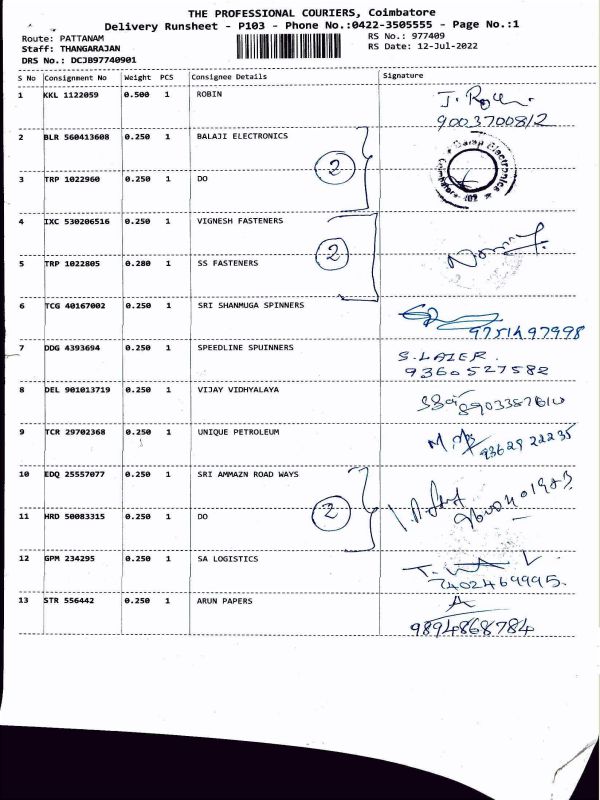 THE PROFESSIONAL COURIERS, Coimbatore
Delivery Runsheet - P103 - Phone No.:0422-3505555 - Page No.:1
Route: PATTANAM RS No.: 977409
Staff: THANGARAJAN RS Date: 12-Jul-2022
DRS No.: DCJB97740901
S No Consignment No Weight PCS Consignee Details Signature
1 KKL 1122059 0.500 1 ROBIN
9003700812
2 BLR 560413608 0.250 1 BALAJI ELECTRONICS
2
Balaji Electronics
3 TRP 1022960 0.250 1 DO
4 IXC 530206516 0.250 1 VIGNESH FASTENERS
2
5 TRP 1022805 0.280 1 SS FASTENERS
6 TCG 40167002 0.250 1 SRI SHANMUGA SPINNERS
9751497998
7 DDG 4393694 0.250 1 SPEEDLINE SPUINNERS
S.LAZER.
9360527582
8 DEL 901013719 0.250 1 VIJAY VIDHYALAYA
9 TCR 29702368 0.250 1 UNIQUE PETROLEUM
9362922235
10 EDQ 25557077 0.250 1 SRI AMMAZN ROAD WAYS
2
11 HRD 50083315 0.250 1 DO
12 GPM 234295 0.250 1 SA LOGISTICS
7402469995.
13 STR 556442 0.250 1 ARUN PAPERS
9894868784